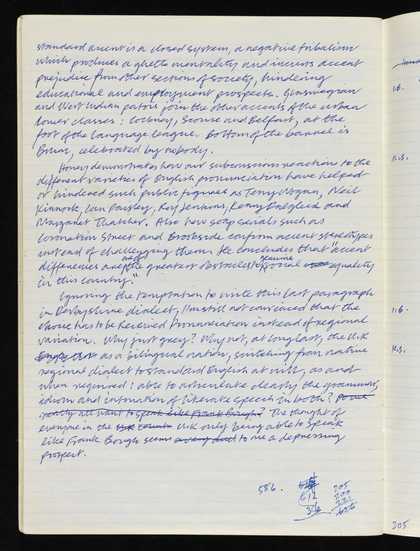 standard accent is a closed system, a negative tribalism
which produces a ghetto mentality and incurs accent
prejudice from other sections of society, hindering
educational and employment prospects. Glaswegian
and West Indian patois join the other accents of the urban
lower classes: Cockney, Scouse and Belfast, at the
foot of the Language League. Bottom of the barrel is
Brum, celebrated by nobody.
Honey demonstrates how our subconscious reaction to the
different varieties of English pronunciation have helped
or hindered such public figures as Terry Wogan, Neil
Kinnock, Ian Paisley, Roy Jenkins, Kenny Dalglish and
Margaret Thatcher. Also how soap serials such as
Coronation Street and Brookside confirm accent stereotypes
instead of challenging them. He concludes that "accent
differences are the greatest obstacles to genuine social equality
in this country."
Ignoring the temptation to write this last paragraph
in Derbyshire dialect, I'm still not convinced that the
choice has to be Received Pronunciation instead of regional
variation. Why just grey? Why not, at long last, the U.K.
as a bilingual nation, switching from native
regional dialect to standard English at will, as and
when required: able to articulate clearly the grammar,
idiom and intonation of literate speech in both? Do we
really all want to speak like Frank Bough? The thought of
everyone in the U.K. only being able to speak
like Frank Bough seems to me a depressing
prospect.
586.
205
200
221
612
n.b.
n.s.
n.b.
n.s.
205